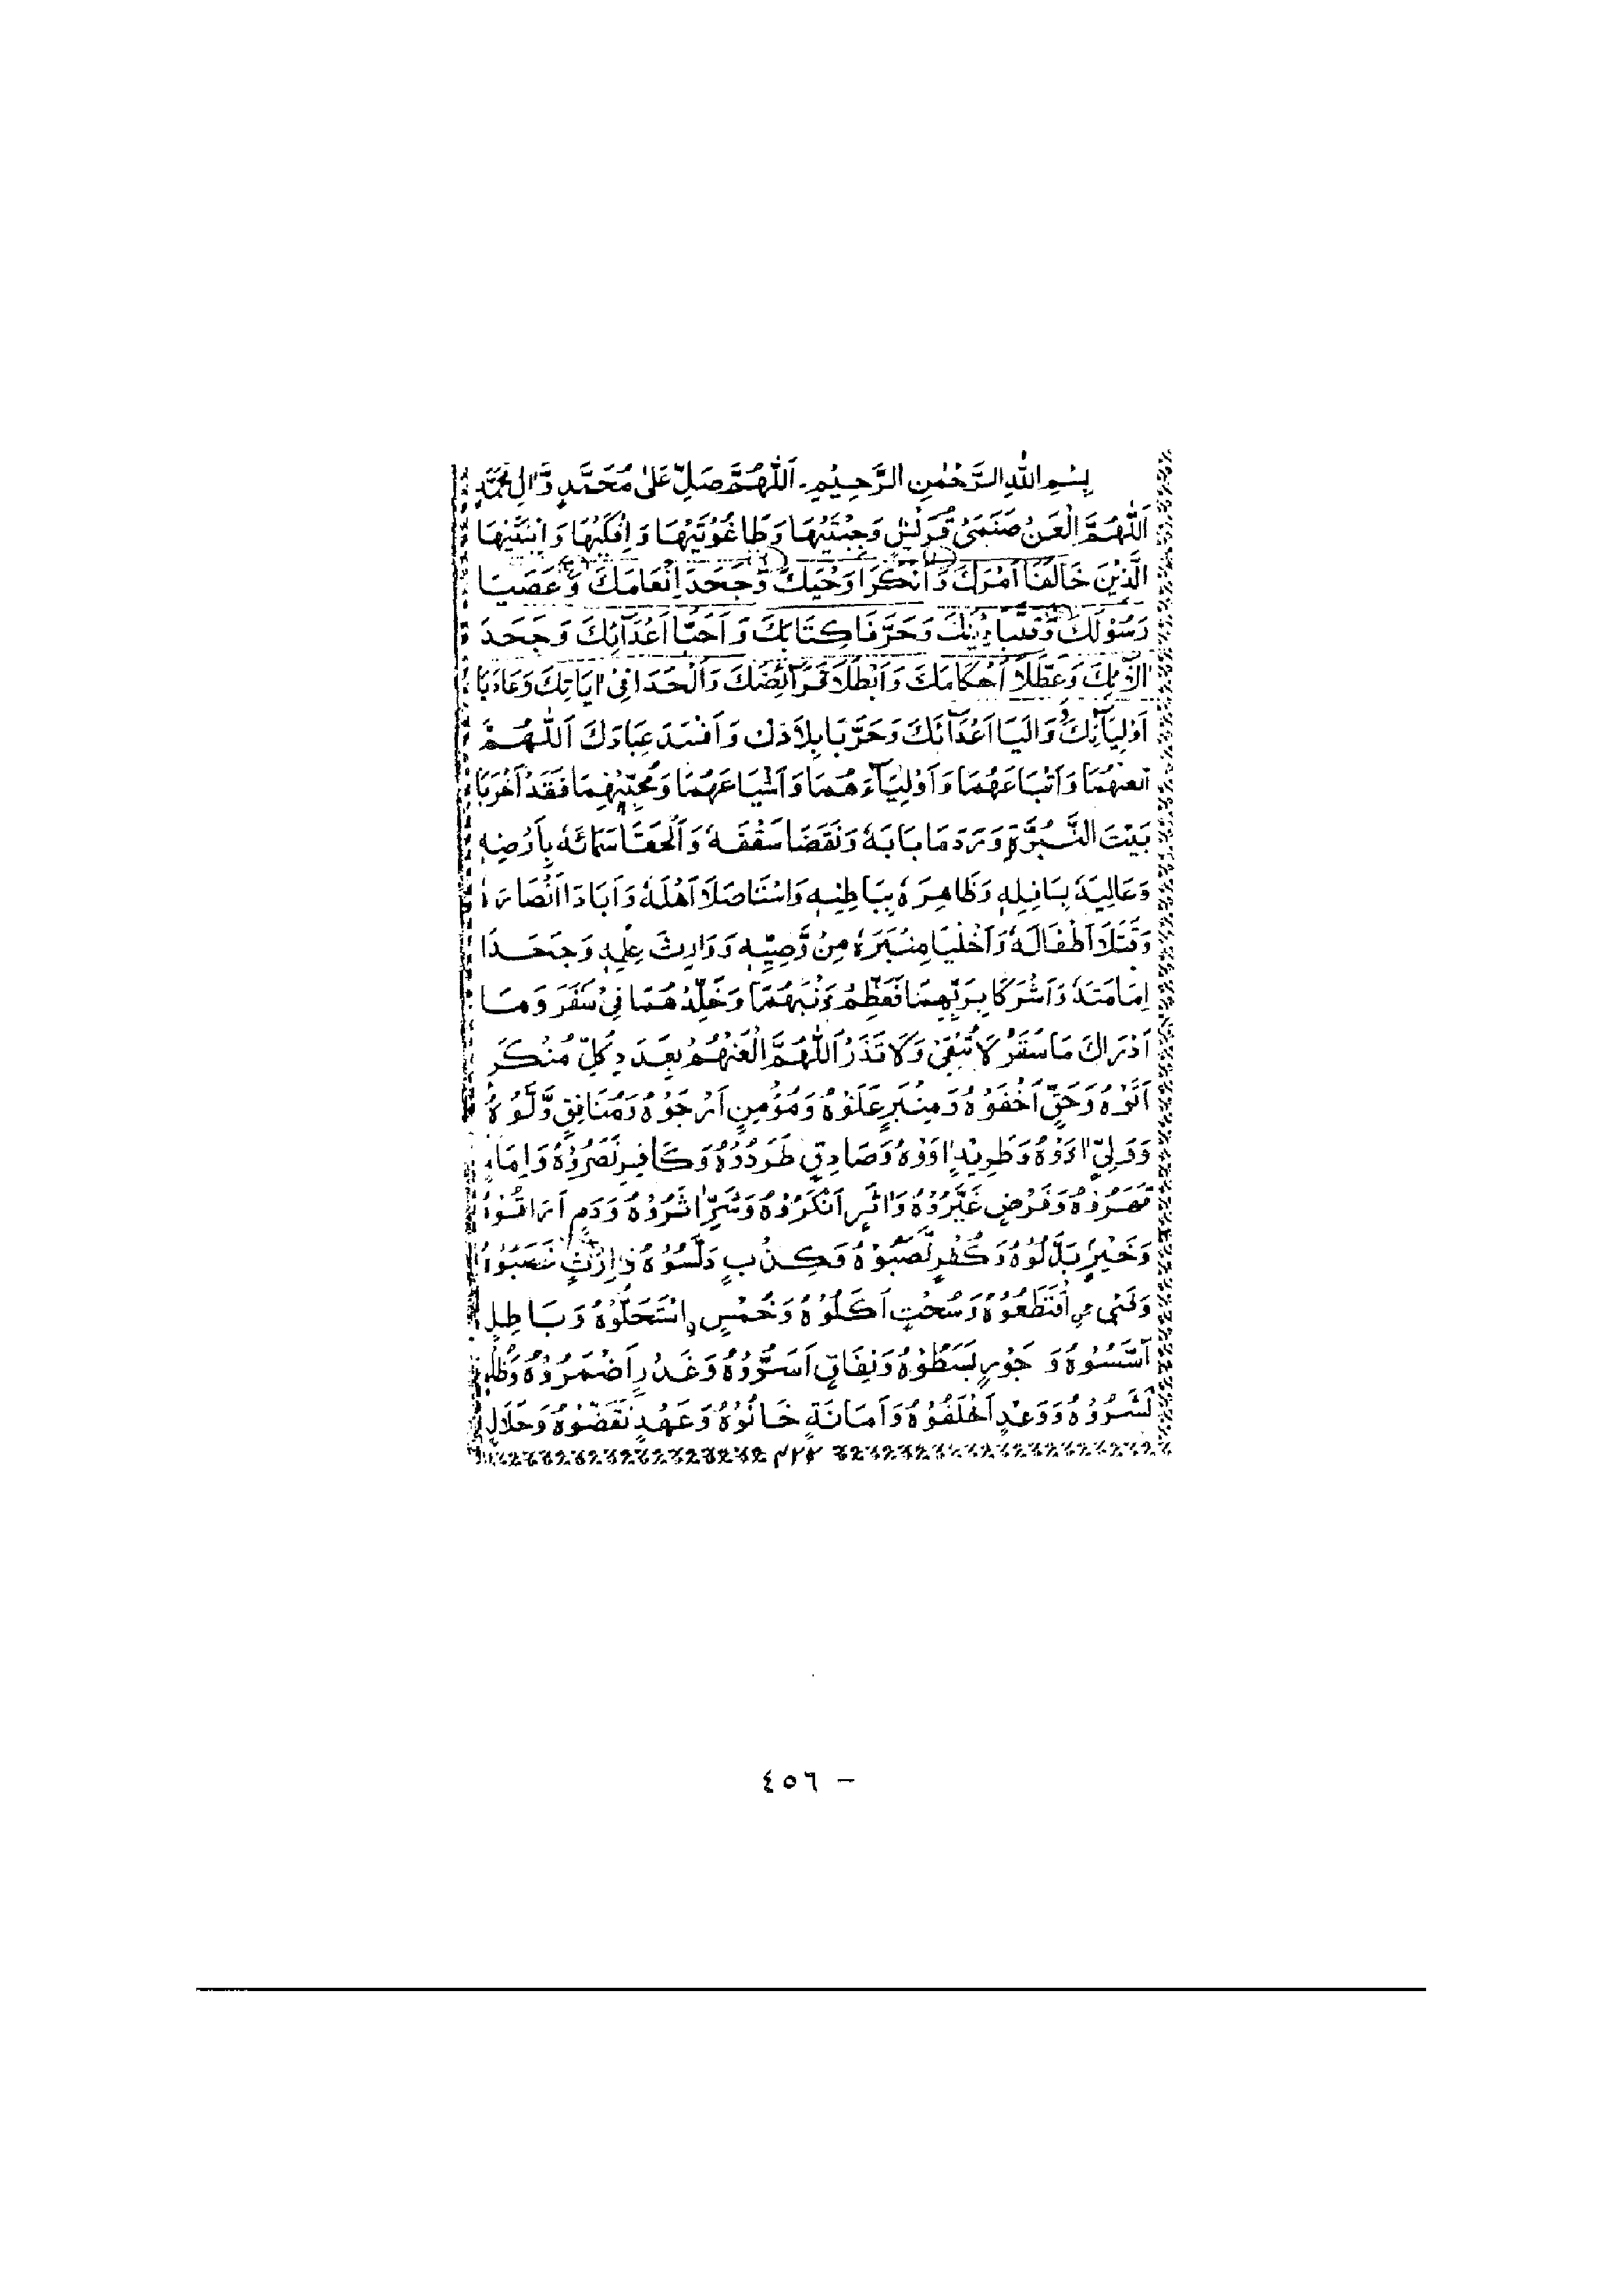 بِسْمِ اللهِ الرَّحْمٰنِ الرَّحِيْمِ۔ اَللّٰهُمَّ صَلِّ عَلٰى مُحَمَّدٍ وَّاٰلِ مُحَمَّدٍ
اَللّٰهُمَّ الْعَنْ صَنَمَىْ قُرَيْشٍ وَجِبْتَيْهَا وَطَاغُوْتَيْهَا وَاِفْكَيْهَا وَابْنَتَيْهِمَا
الَّذَيْنِ خَالَفَا اَمْرَكَ وَاَنْكَرَا وَحْيَكَ وَجَحَدَا اِنْعَامَكَ وَعَصَيَا
رَسُوْلَكَ وَقَلَّبَا دِيْنَكَ وَحَرَّفَا كِتَابَكَ وَاَحَبَّا اَعْدَآئَكَ وَجَحَدَ
اٰلَآئَكَ وَعَطَّلَا اَحْكَامَكَ وَاَبْطَلَا فَرَآئِضَكَ وَاَلْحَدَا فِىْ اٰيَاتِكَ وَعَادَيَا
اَوْلِيَآئَكَ وَوَالَيَا اَعْدَآئَكَ وَخَرَّبَا بِلَادَكَ وَاَفْسَدَ عِبَادَكَ اَللّٰهُمَّ
الْعَنْهُمَا وَاَتْبَاعَهُمَا وَاَوْلِيَآءَهُمَا وَاَشْيَاعَهُمَا وَمُحِبِّيْهِمَا فَقَدْ اَخْرَبَا
بَيْتَ النُّبُوَّةِ وَرَدَمَا بَابَهٗ وَنَقَضَا سَقْفَهٗ وَاَلْحَقَا سَمَائَهٗ بِاَرْضِهٖ
وَعَالِيَهٗ بِسَافِلِهٖ وَظَاهِرَهٗ بِبَاطِنِهٖ وَاسْتَاصَلَا اَهْلَهٗ وَاَبَادَا اَنْصَارَهٗ
وَقَتَلَا اَطْفَالَهٗ وَاَخْلَيَا مِنْبَرَهٗ مِنْ وَّصِيِّهٖ وَوَارِثِ عِلْمِهٖ وَجَحَدَا
اِمَامَتَهٗ وَاَشْرَكَا بِرَبِّهِمَا فَعَظِّمْ ذَنْبَهُمَا وَخَلِّدْهُمَا فِىْ سَقَرَ وَمَا
اَدْرَاكَ مَا سَقَرُ لَا تُبْقِىْ وَلَا تَذَرُ اَللّٰهُمَّ الْعَنْهُمْ بِعَدَدِ كُلِّ مُنْكَرٍ
اَتَوْهُ وَحَقٍّ اَخْفَوْهُ وَمِنْبَرٍ عَلَوْهُ وَمُؤْمِنٍ اَرْجَوْهُ وَمُنَافِقٍ وَّلَّوْهُ
وَوَلِىٍّ اٰذَوْهُ وَطَرِيْدٍ اٰوَوْهُ وَصَادِقٍ طَرَدُوْهُ وَكَافِرٍ نَصَرُوْهُ وَاِمَامٍ
قَهَرُوْهُ وَفَرْضٍ غَيَّرُوْهُ وَاَثَرٍ اَنْكَرُوْهُ وَشَرٍّ اٰثَرُوْهُ وَدَمٍ اَرَاقُوْهُ
وَخَيْرٍ بَدَّلُوْهُ وَكُفْرٍ نَصَبُوْهُ وَكِذْبٍ دَلَّسُوْهُ وَاِرْثٍ غَصَبُوْهُ
وَفَىْءٍ اقْتَطَعُوْهُ وَسُحْتٍ اَكَلُوْهُ وَخُمْسٍ اِسْتَحَلُّوْهُ وَبَاطِلٍ
اَسَّسُوْهُ وَجَوْرٍ بَسَطُوْهُ وَنِفَاقٍ اَسَرُّوْهُ وَغَدْرٍ اَضْمَرُوْهُ وَظُلْمٍ
نَشَرُوْهُ وَوَعْدٍ اَخْلَفُوْهُ وَاَمَانَةٍ خَانُوْهُ وَعَهْدٍ نَقَضُوْهُ وَحَلَالٍ
٤٥٦ –